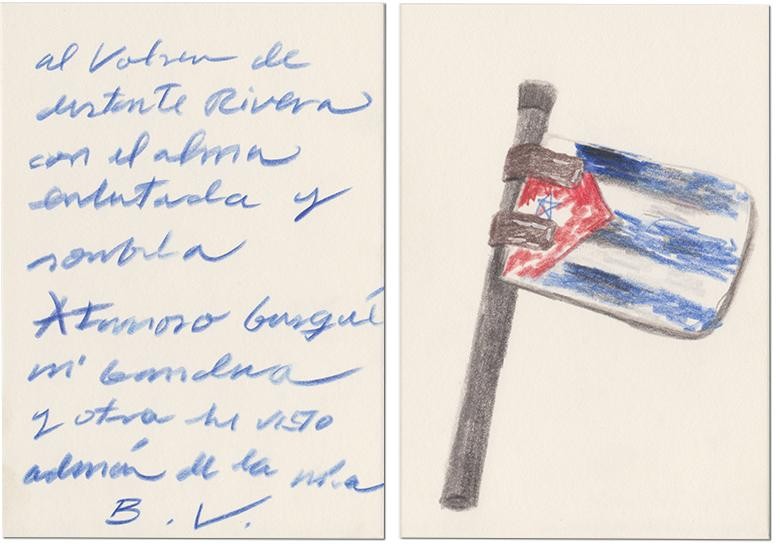 al Volver de
distante Rivera
con el alma
enlutada y
sombría
Afanoso busqué
mi bandera
y otra he visto
además de la mía
B.V.